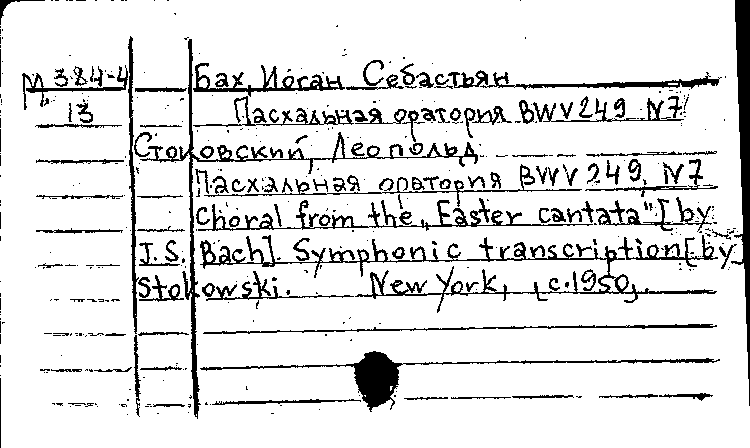 М 384-4
13
Бах, Иоган Себастьян
Пасхальная оратория BWV 249 N7
Стоковский, Леопольд
Пасхальная оратория BWV 249, N7
Choral from the „Easter cantata" [by
J.S. Bach]. Symphonic transcription [by
Stokowski. New York, [c.1950].